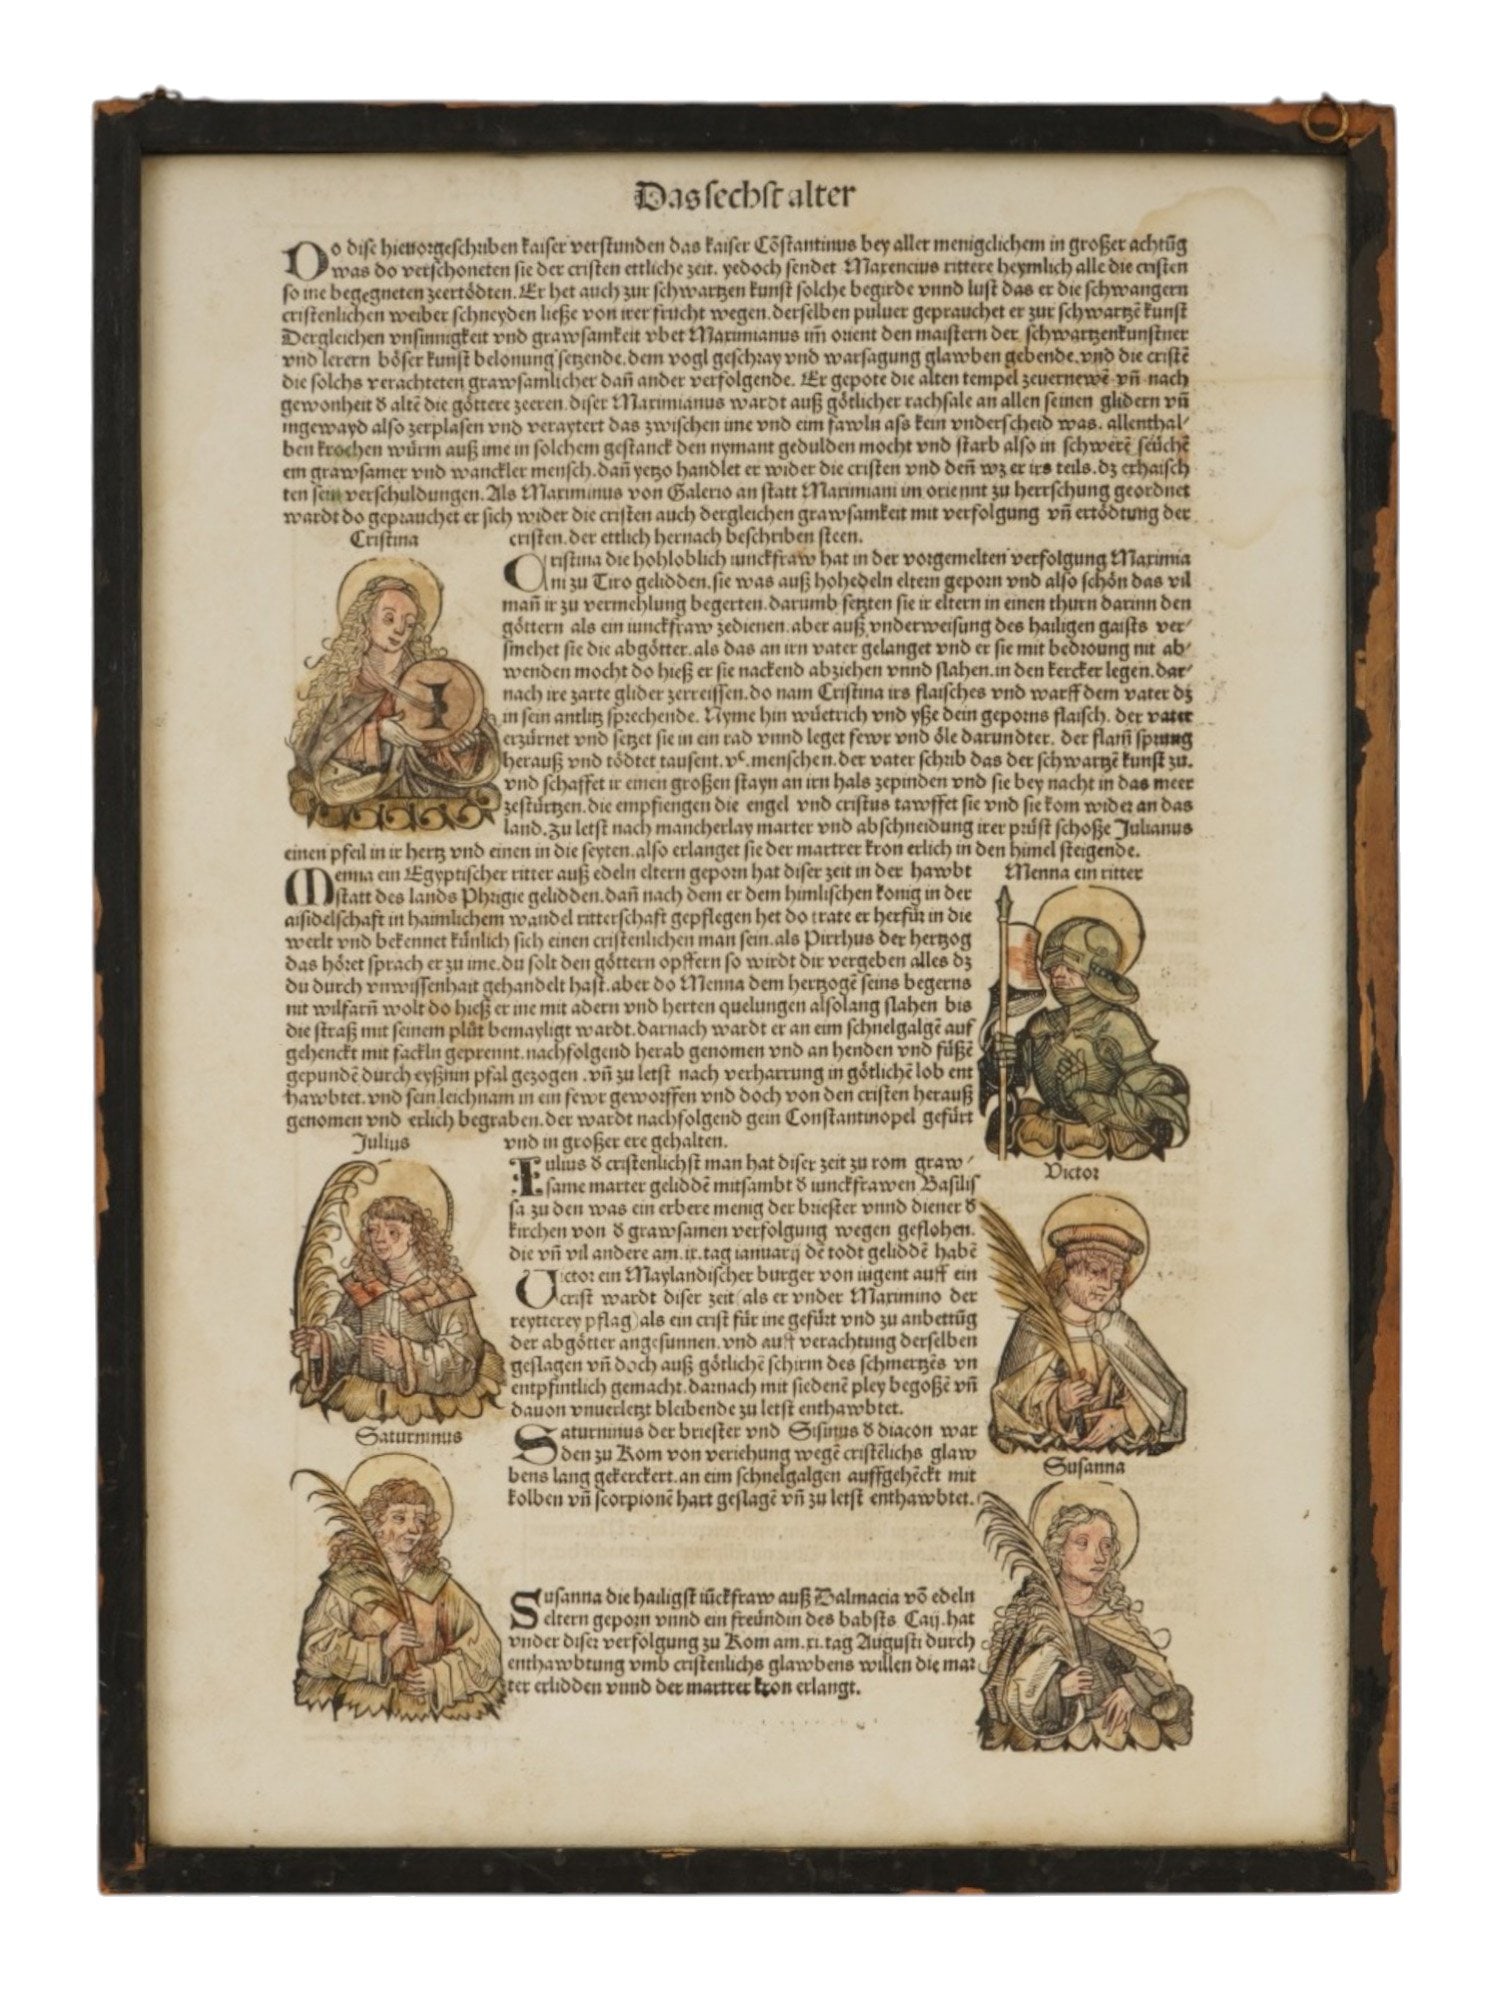 Das sechst alter
Do dise hieuorgeschriben kaiser verstunden das kaiser Cõstantinus bey aller menigclichem in großer achtũg
was do verschoneten sie der cristen ettliche zeit. yedoch sendet Maxencius rittere heymlich alle die cristen
so ine begegneten zeertödten. Er het auch zur schwartzen kunst solche begirde vnnd lust das er die schwangern
cristenlichen weiber schneyden ließe von irer frucht wegen. derselben puluer geprauchet er zur schwartzẽ kunst
Dergleichen vnsinnigkeit vnd grawsamkeit vbet Maximianus im̃ orient den maistern der schwartzenkunstner
vnd lerern böser kunst belonung setzende. dem vogl geschray vnd warsagung glawben gebende. vnd die cristẽ
die solchs verachteten grawsamlicher dañ ander verfolgende. Er gepote die alten tempel zeuernewẽ vñ nach
gewonheit d altẽ die göttere zeeren. diser Maximianus wardt auß götlicher rachsale an allen seinen glidern vñ
ingewayd also zerplasen vnd veraytert das zwischen ime vnd eim fawln ass kein vnderscheid was. allenthal-
ben krochen würm auß ime in solchem gestanck den nymant gedulden mocht vnd starb also in schwerẽ seüchẽ
ein grawsamer vnd wanckler mensch. dañ yetzo handlet er wider die cristen vnd deñ wz er irs teils. dz erhaisch
ten sein verschuldungen. Als Maximinus von Galerio an statt Maximiani im orient zu herrschung geordnet
wardt do geprauchet er sich wider die cristen auch dergleichen grawsamkeit mit verfolgung vñ ertödtung der
Cristina
cristen. der ettlich hernach beschriben steen.
Cristina die hohloblich iunckfraw hat in der vorgemelten verfolgung Maximia
ni zu Tiro gelidden. sie was auß hohedeln eltern geporn vnd also schön das vil
mañ ir zu vermehlung begerten. darumb setzten sie ir eltern in einen thurn darinn den
göttern als ein iunckfraw zedienen. aber auß vnderweisung des hailigen gaists ver-
smehet sie die abgötter. als das an irn vater gelanget vnd er sie mit bedroung nit ab-
wenden mocht do hieß er sie nackend abziehen vnnd slahen. in den kercker legen. dar-
nach ire zarte glider zerreissen. do nam Cristina irs flaisches vnd warff dem vater dz
in sein antlitz sprechende. Nyme hin wüetrich vnd yße dein geporns flaisch. der vater
erzürnet vnd setzet sie in ein rad vnnd leget fewr vnd öle darundter. der flam̃ sprung
herauß vnd tödtet tausent. vᶜ. menschen. der vater schrib das der schwartzẽ kunst zu.
vnd schaffet ir einen großen stayn an irn hals zepinden vnd sie bey nacht in das meer
zestürtzen. die empfiengen die engel vnd cristus tawffet sie vnd sie kom wider an das
land. Zu letst nach mancherlay marter vnd abschneidung irer prüst schoße Julianus
einen pfeil in ir hertz vnd einen in die seyten. also erlanget sie der martrer kron erlich in den himel steigende.
Menna ein Egyptischer ritter auß edeln eltern geporn hat diser zeit in der hawbt
statt des lands Phrigie gelidden. dañ nach dem er dem himlischen konig in der
aisidelschaft in haimlichem wandel ritterschaft gepflegen het do trate er herfür in die
werlt vnd bekennet künlich sich einen cristenlichen man sein. als Pirrhus der hertzog
das höret sprach er zu ime. du solt den göttern opffern so wirdt dir vergeben alles dz
du durch vnwissenhait gehandelt hast. aber do Menna dem hertzogẽ seins begerns
nit wilfarñ wolt do hieß er ine mit adern vnd herten quelungen alsolang slahen bis
die straß mit seinem plüt bemayligt wardt. darnach wardt er an eim schnelgalgẽ auf
gehenckt mit fackln geprennt. nachfolgend herab genomen vnd an henden vnd füßẽ
gepundẽ durch eyßnin pfal gezogen. vñ zu letst nach verharrung in götlichẽ lob ent
hawbtet. vnd sein leichnam in ein fewr geworffen vnd doch von den cristen herauß
genomen vnd erlich begraben. der wardt nachfolgend gein Constantinopel gefürt
vnd in großer ere gehalten.
Menna ein ritter
Julius
Iulius d cristenlichst man hat diser zeit zu rom graw-
same marter geliddẽ mitsambt d iunckfrawen Basilis
sa. zu den was ein erbere menig der briester vnnd diener d
kirchen von d grawsamen verfolgung wegen geflohen.
die vñ vil andere am .ix. tag ianuarij dẽ todt geliddẽ habẽ
Victor
Victor ein Maylandischer burger von iugent auff ein
crist wardt diser zeit (als er vnder Maximino der
reytterey pflag) als ein crist für ine gefürt vnd zu anbettũg
der abgötter angesunnen. vnd auff verachtung derselben
geslagen vñ doch auß götlichẽ schirm des schmertzẽs vn
entpfintlich gemacht. darnach mit siedenẽ pley begoßẽ vñ
dauon vnuerletzt bleibende zu letst enthawbtet.
Saturninus
Saturninus der briester vnd Sisinus d diacon war
den zu Rom von veriehung wegẽ cristẽlichs glaw
bens lang gekerckert. an eim schnelgalgen auffgehẽckt mit
kolben vñ scorpionẽ hart geslagẽ vñ zu letst enthawbtet.
Susanna
Susanna die hailigst iũckfraw auß Dalmacia võ edeln
eltern geporn vnnd ein freündin des babsts Caij. hat
vnder diser verfolgung zu Rom am .xi. tag Augusti durch
enthawbtung vmb cristenlichs glawbens willen die mar
ter erlidden vnnd der martrer kron erlangt.